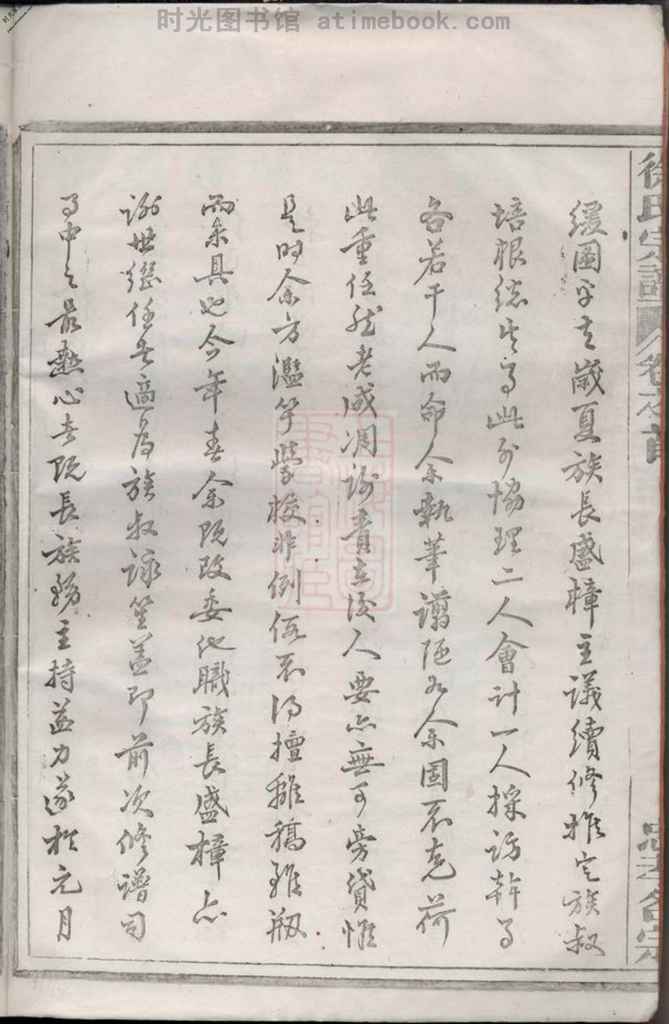 时光图书馆 atimebook.com
徐氏宗譜 卷之首
緩圖乎去歲夏族長盛樟主議續修推定族叔
培根總其事此外協理二人會計一人採訪幹事
各若干人而命余執筆謭陋如余固不克荷
此重任然老成凋謝責在後人要亦無可旁貸惟
是時余方濫竽黌校非例假不得擅離稿雖剏
而未具也今年春余既改委他職族長盛樟亦
謝世繼任者適為族叔詠笙蓋即前次修譜司
事中之最熱心者既長族務主持益力遂於元月